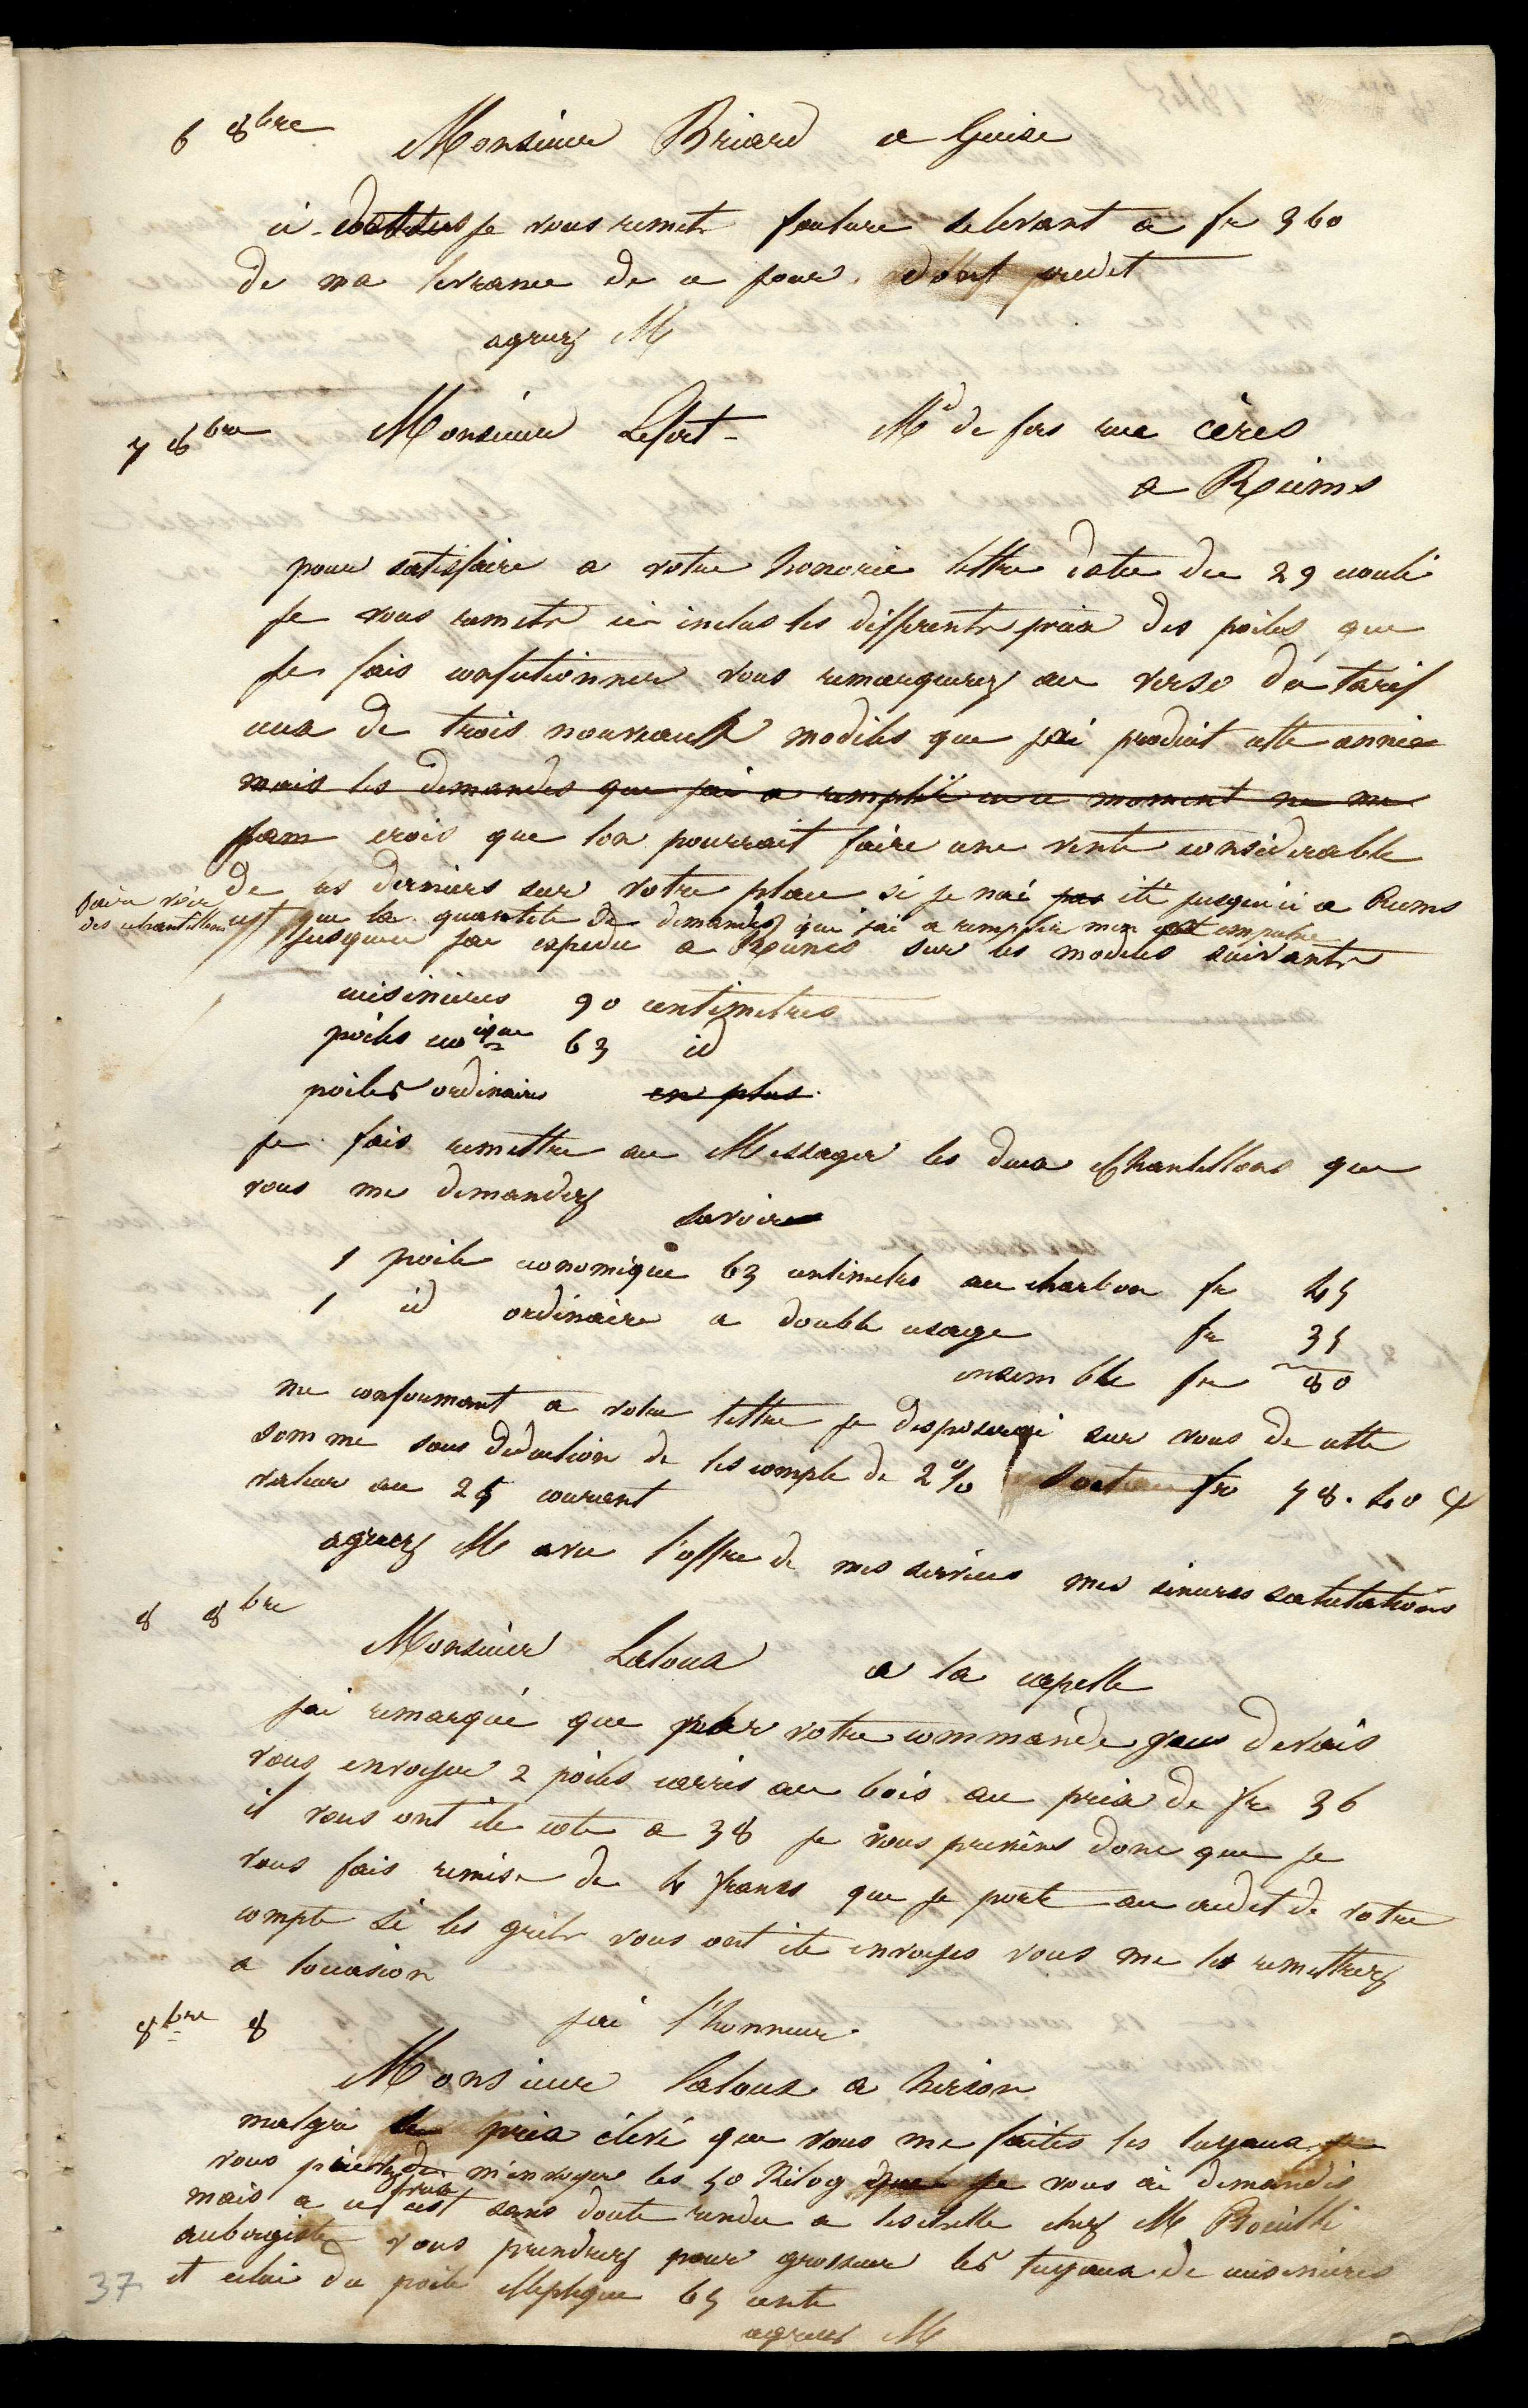 6 8bre Monsieur Briard a Guise
ci-dessus je vous remets facture selevant a fr 360
de ma livrance de ce jour. dont credit
agreez M
7 8bre Monsieur Lefort - Md de fers rue cères
a Reims
pour satisfaire a votre honorée lettre datée du 29 écoulé
je vous remets ci inclus les differents prix des poiles que
je fais confectionner vous remarquerez au verso du tarif
ceux de trois nouveaux modèles que jai produit cette année
mais les demandes que jai a remplir en ce moment ne me
je crois que lon pourrait faire une vente considerable
de ces derniers sur votre place si je nai pas été jusquici a Reims
faire voir
des echantillons cest que la quantité de demandes que jai a remplir men ont empeché
jusquici jai expedié a Reims sur les modeles suivants
cuisinieres 90 centimetres
poiles ecoique 63 id
poiles ordinaires en plus
je fais remettre au Messager les deux echantillons que
vous me demandez
savoir
1 poile economique 63 centimetres au charbon fr 45
1 id ordinaire a double usage fr 35
ensemble fr 80
me conformant a votre lettre je disposerai sur vous de cette
somme sous déduction de lescompte de 2 % soit fr 78.40 c
valeur au 25 courant
agreez M avec l'offre de mes services mes sinceres salutations
8 8bre
Monsieur Laloux a la capelle
jai remarqué que par votre commande je devais
vous envoyer 2 poiles carrés au bois au prix de fr 36
il vous ont été coté a 38 je vous previens donc que je
vous fais remise de 4 francs que je porte au credit de votre
compte si les grils vous ont été envoyés vous me les remettrez
a loccasion
jai l'honneur
8bre 8
Monsieur Laloux a hirson
malgré le prix élevé que vous me faites les tuyaux je
vous prie de m'envoyer les 50 Kilog que je vous ai demandés
mais a ce prix cest sans doute rendu a leschelle chez M Bouillé
aubergiste vous prendrez pour grosseur les tuyaux de cuisinieres
et celui du poile elleptique 65 cent
agreez M
37